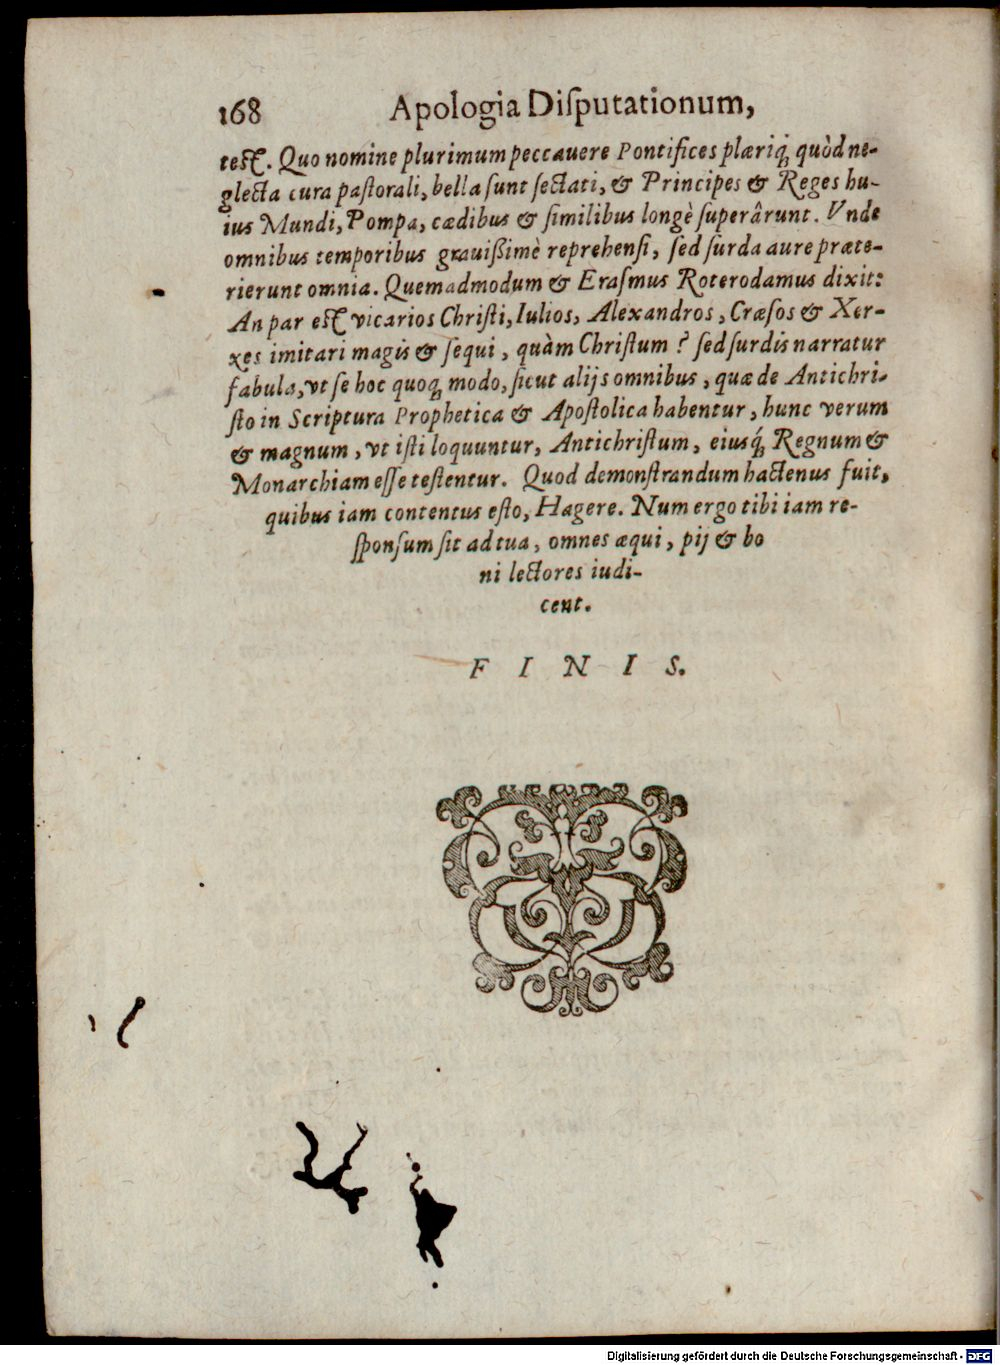 168 Apologia Diſputationum,
teſt. Quo nomine plurimum peccauere Pontifices plæriq́; quòd ne-
glecta cura paſtorali, bella ſunt ſectati, & Principes & Reges hu-
ius Mundi, Pompa, cædibus & ſimilibus longè ſuperârunt. Vnde
omnibus temporibus grauißimè reprehenſi, ſed ſurda aure præte-
rierunt omnia. Quemadmodum & Eraſmus Roterodamus dixit:
An par eſt vicarios Chriſti, Iulios, Alexandros, Cræſos & Xer-
xes imitari magis & ſequi, quàm Chriſtum? ſed ſurdis narratur
fabula, vt ſe hoc quoq; modo, ſicut alijs omnibus, quæ de Antichri-
ſto in Scriptura Prophetica & Apoſtolica habentur, hunc verum
& magnum, vt iſti loquuntur, Antichriſtum, eiusq́; Regnum &
Monarchiam eſſe teſtentur. Quod demonſtrandum hactenus fuit,
quibus iam contentus eſto, Hagere. Num ergo tibi iam re-
ſponſum ſit ad tua, omnes æqui, pij & bo
ni lectores iudi-
cent.
F I N I S.
Digitalisierung gefördert durch die Deutsche Forschungsgemeinschaft - DFG